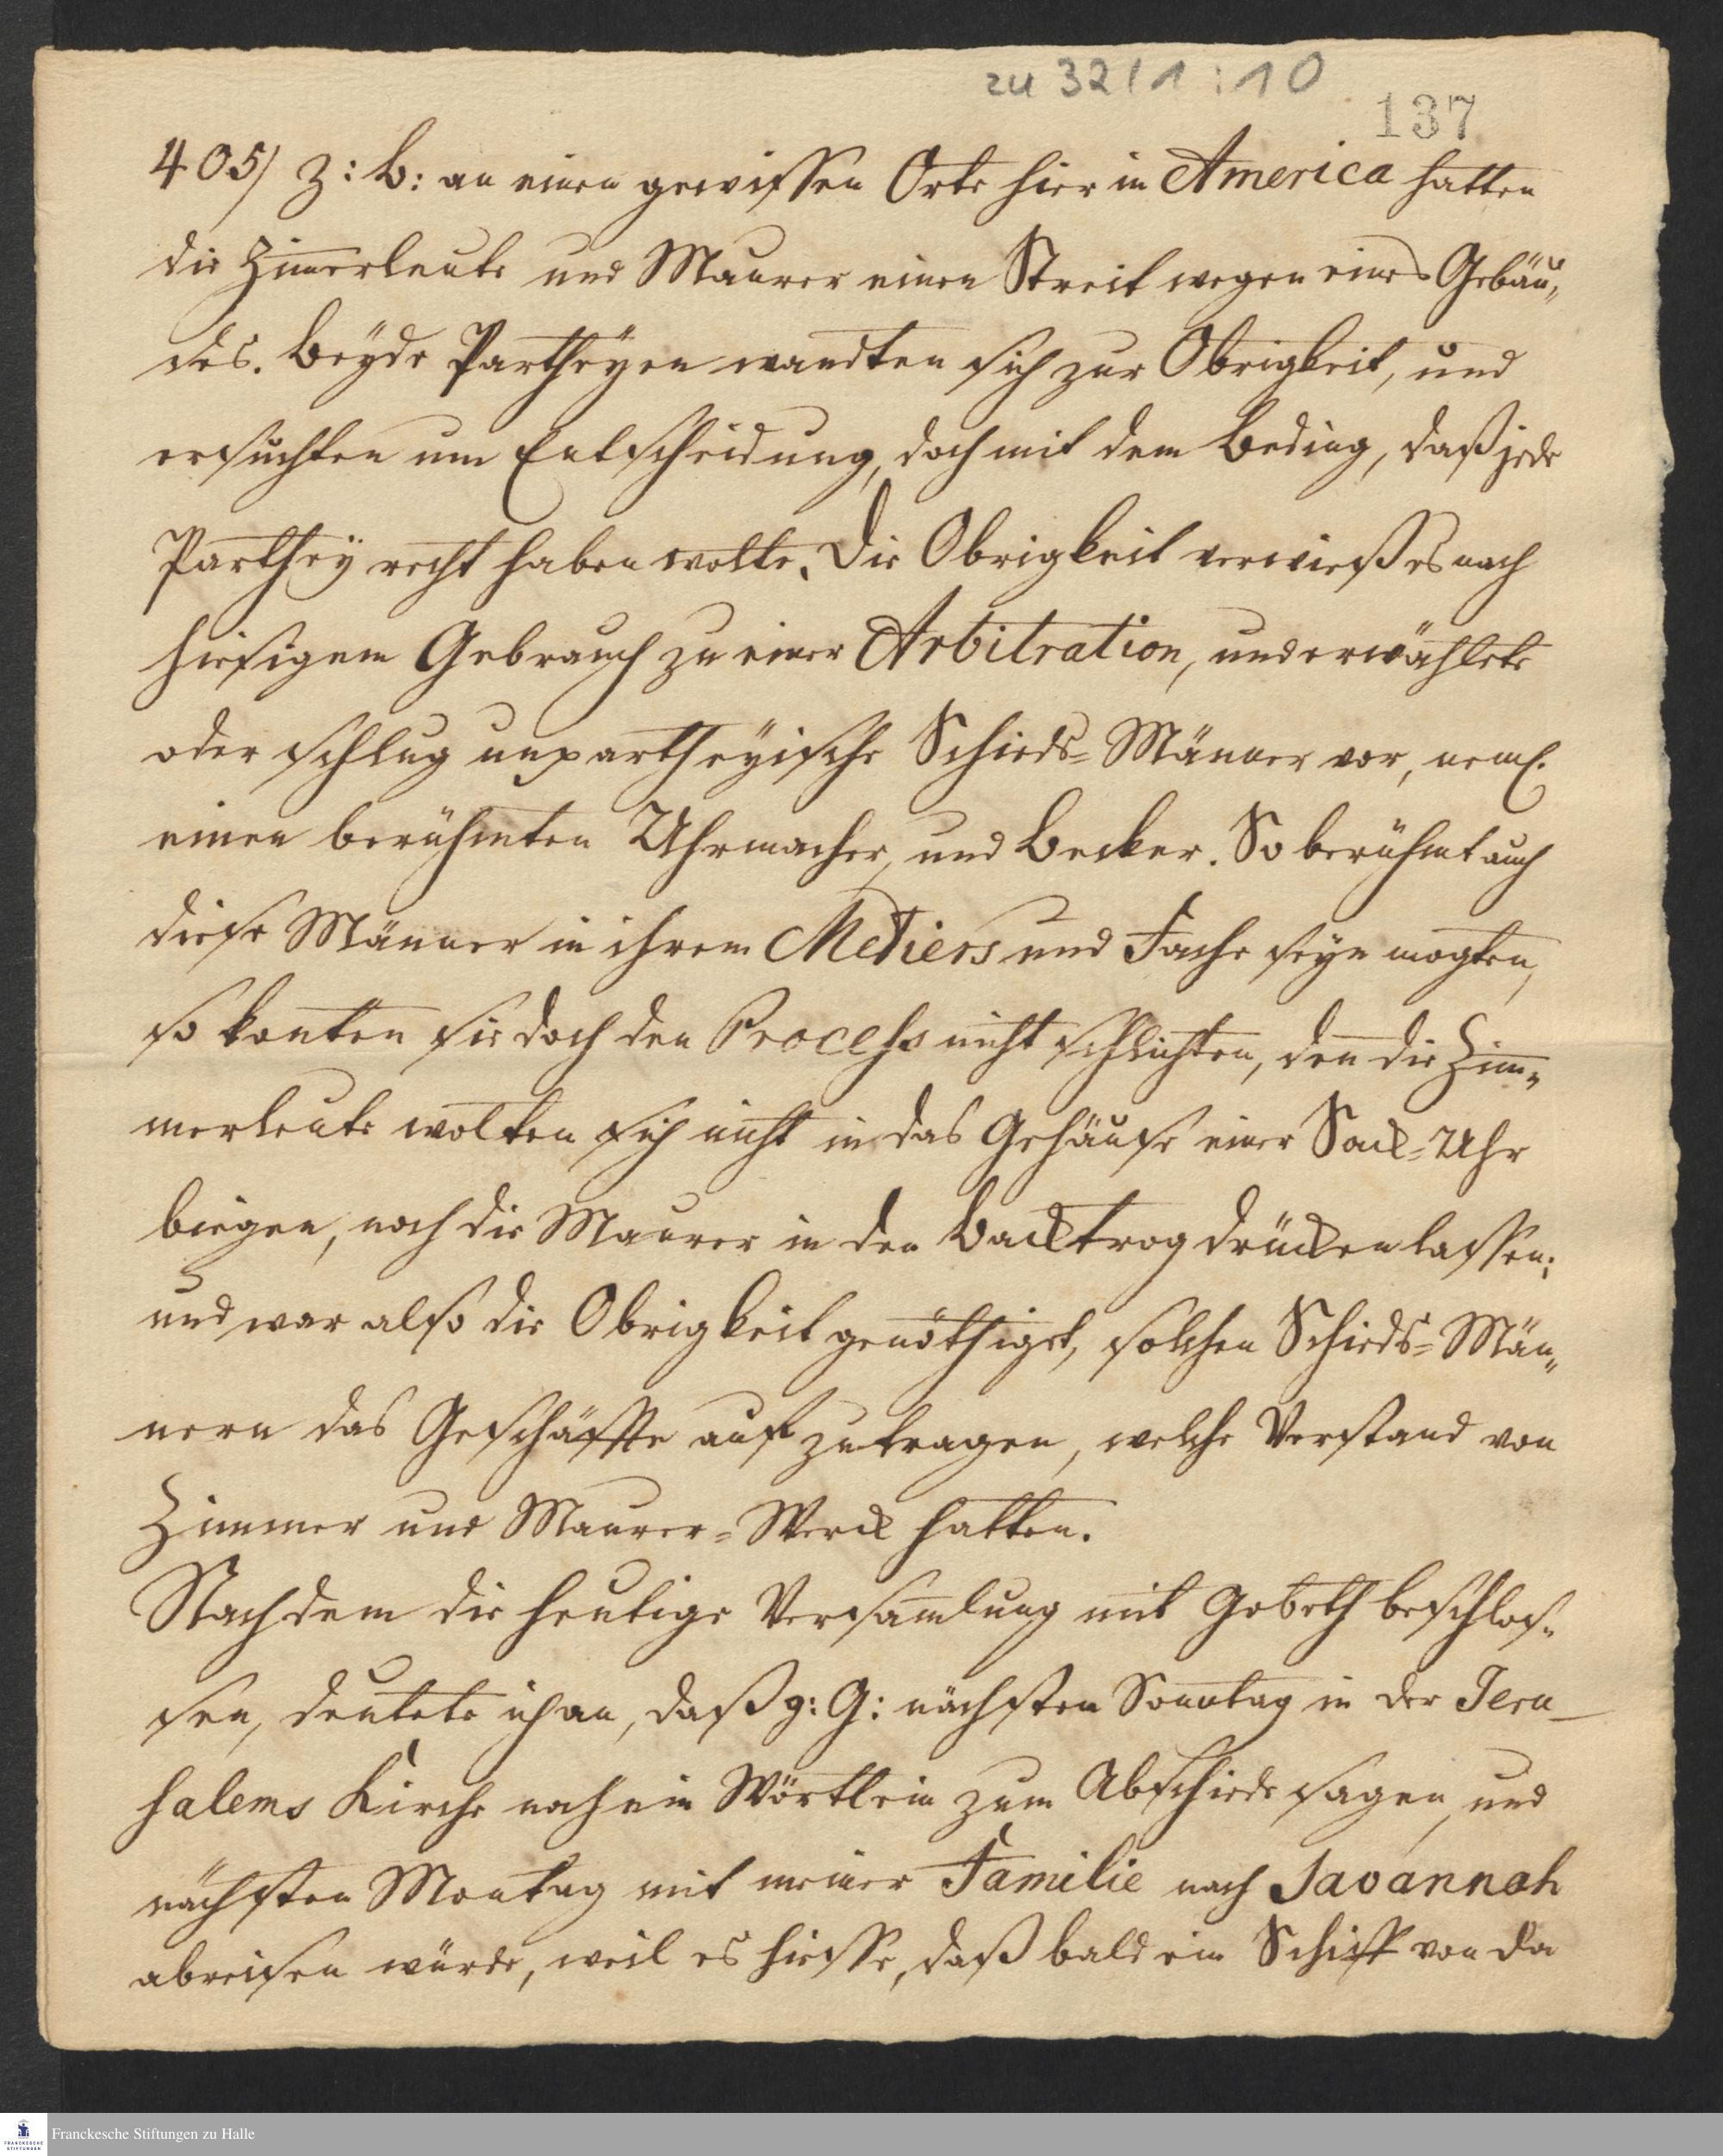 zu 32/1:10
137
405/ Z: B: an einen gewissen Orte hier in America hatten
die Zim̄erleute und Maurer einen Streit wegen eines Gebäu„
des. Beyde Partheÿen wandten sich zur Obrigkeit, und
ersuchten um Entscheidung, doch mit dem Beding, daß jede
Parthey recht haben wolte. Die Obrigkeit verwieß es nach
hiesigem Gebrauch zu einer Arbitration, und erwählete
oder schlug unpartheÿische Schieds-Männer vor, neml.
einen berühmten Uhrmacher, und Becker. So berühmt auch
diese Männer in ihrem Metiers und Fache seyn mogten,
so konten sie doch den Process nicht schlichten, den̄ die Zim„
merleute wolten sich nicht in das Gehäuse einer Sack-Uhr
biegen, noch die Maurer in den Backtrog drücken lassen;
und war also die Obrigkeit genöthiget, solchen Schieds-Män„
nern das Geschäffte auf zutragen, welche Verstand von
Zimmer und Maurer-Werck hatten.
Nachdem die heutige Versam̄lung mit Gebeth beschlos„
sen, deutete ich an, daß g: G: nächsten Sonntag in der Jeru_
salems Kirche noch ein Wörtlein zum Abschiede sagen, und
nächsten Montag mit meiner Familie nach Savannah
abreisen würde, weil es hiesse, daß bald ein Schiff von da
Franckesche Stiftungen zu Halle